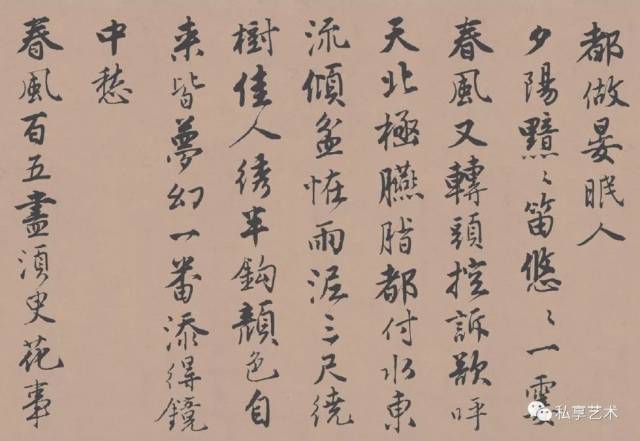 都做晏眠人
夕陽黯ゝ笛悠ゝ一霎
春風又轉頭控訴欲呼
天北極臙脂都付水東
流傾盆怪雨泥三尺繞
樹佳人綉半鈎顏色自
来皆夢幻一番添得鏡
中愁
春風百五盡湏臾花事
私享艺术